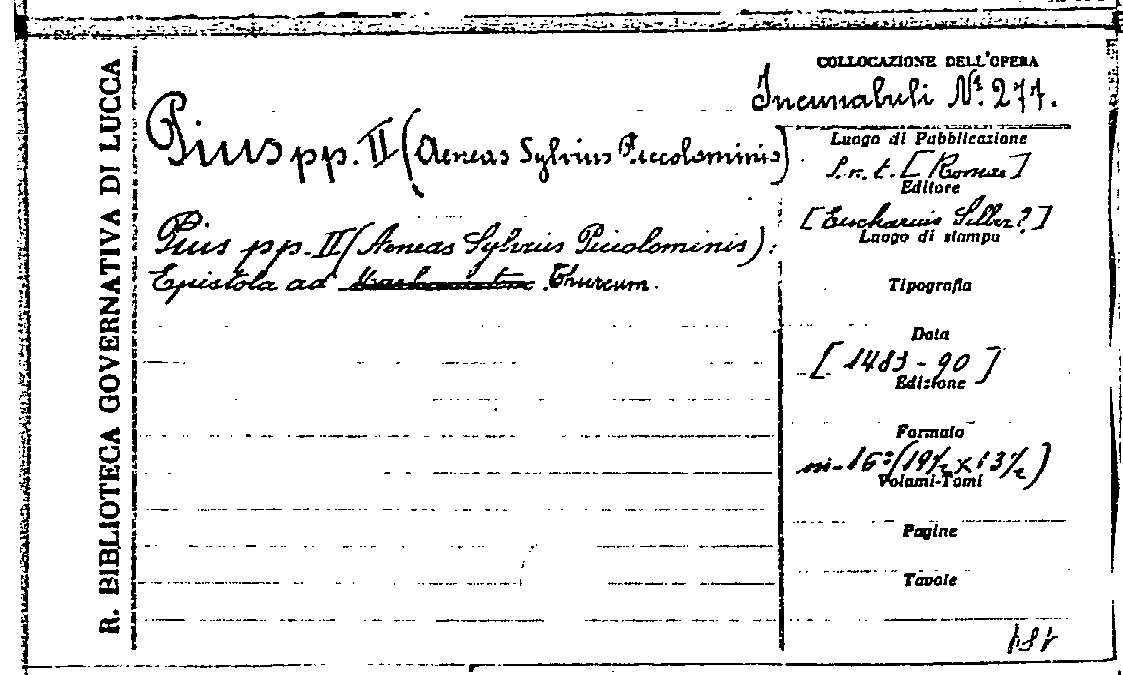 R. BIBLIOTECA GOVERNATIVA DI LUCCA
COLLOCAZIONE DELL'OPERA
Incunabuli Nº. 277.
Pius pp. II (Aeneas Sylvius Piccolominis)
Pius pp. II (Aeneas Sylvius Piccolominis):
Epistola ad Thurcum.
Luogo di Pubblicazione
S. n. t. [Romae]
Editore
[Eucharius Silber?]
Luogo di stampa
Tipografia
Data
[1483-90]
Edizione
Formato
in-16º (19½ x 13½)
Volumi-Tomi
Pagine
Tavole